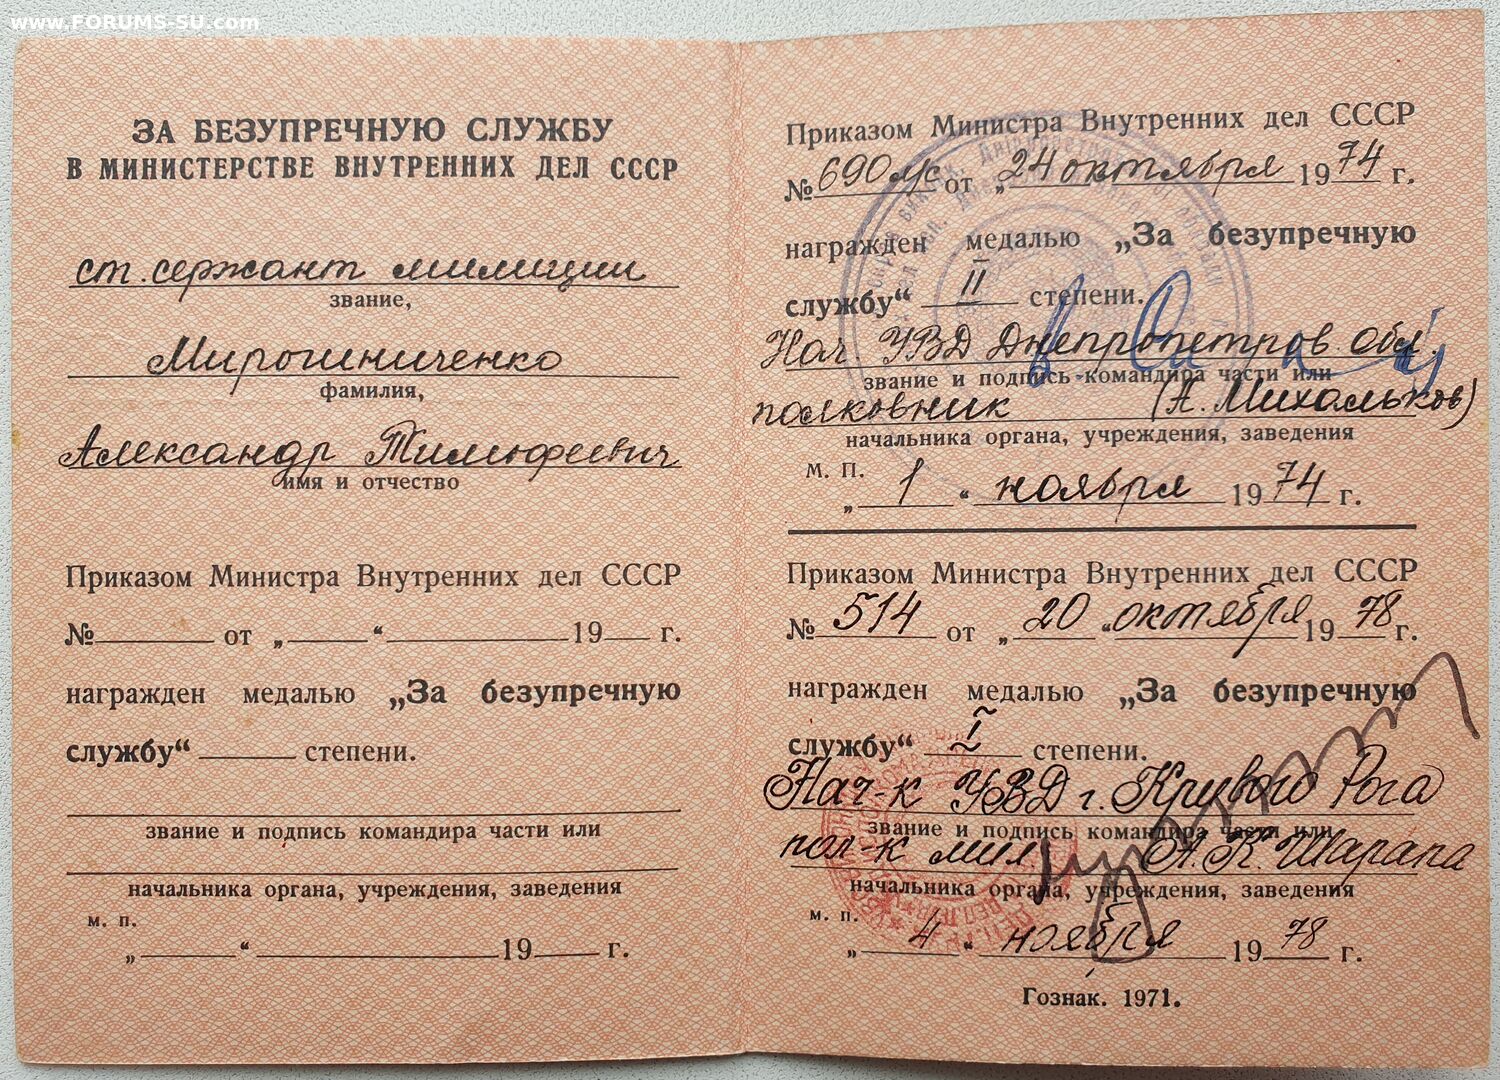 www.FORUMS-SU.com
ЗА БЕЗУПРЕЧНУЮ СЛУЖБУ
В МИНИСТЕРСТВЕ ВНУТРЕННИХ ДЕЛ СССР
ст. сержант милиции
звание,
Мирошниченко
фамилия,
Александр Тимофеевич
имя и отчество
Приказом Министра Внутренних дел СССР
№ от „ “ 19 г.
награжден медалью „За безупречную
службу“ степени.
звание и подпись командира части или
начальника органа, учреждения, заведения
м. п.
„ “ 19 г.
Приказом Министра Внутренних дел СССР
№ 690 л/с от „ 24 октября 1974 г.
награжден медалью „За безупречную
службу“ II степени.
Нач УВД Днепропетров. обл.
звание и подпись командира части или
полковник (А. Михольков)
начальника органа, учреждения, заведения
м. п.
„ 1 “ ноября 1974 г.
Приказом Министра Внутренних дел СССР
№ 514 от „ 20 “ октября 1978 г.
награжден медалью „За безупречную
службу“ I степени.
Нач-к УВД г. Кривого Рога
звание и подпись командира части или
пол-к мил А. К. Шарапа
начальника органа, учреждения, заведения
м. п.
„ 4 “ ноября 1978 г.
Гознак. 1971.